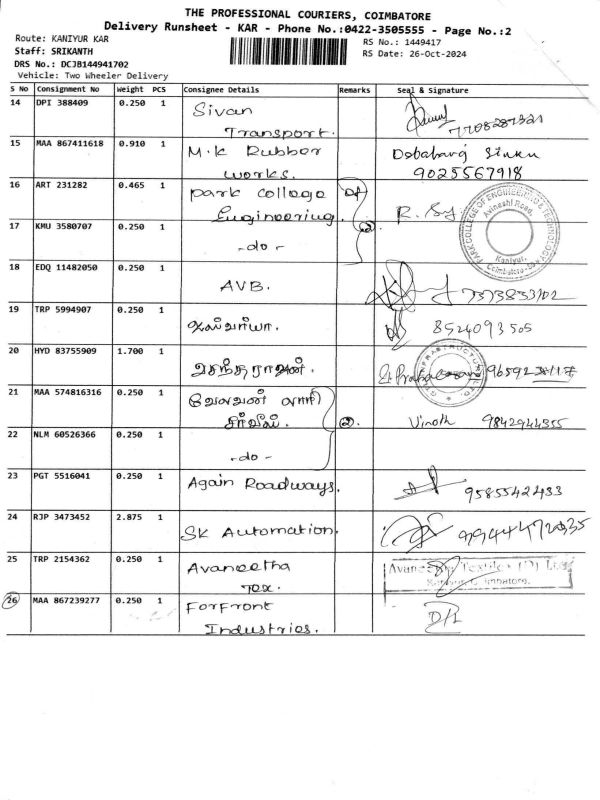 THE PROFESSIONAL COURIERS, COIMBATORE
Delivery Runsheet - KAR - Phone No.:0422-3505555 - Page No.:2
Route: KANIYUR KAR
RS No.: 1449417
Staff: SRIKANTH
RS Date: 26-Oct-2024
DRS No.: DCJB144941702
Vehicle: Two Wheeler Delivery
S No Consignment No Weight PCS Consignee Details Remarks Seal & Signature
14 DPI 388409 0.250 1 Sivan
Transport. 7708287321
15 MAA 867411618 0.910 1 M.K Rubber
works. 9025567918
16 ART 231282 0.465 1 Park College of
Engineering. 2.
PARK COLLEGE OF ENGINEERING & TECHNOLOGY
Avinashi Road,
Kaniyur,
Coimbatore-59
17 KMU 3580707 0.250 1 -do-
18 EDQ 11482050 0.250 1 AVB. 7373833102
19 TRP 5994907 0.250 1 8524093505
20 HYD 83755909 1.700 1 96592
21 MAA 574816316 0.250 1 2. Vinoth 9842944355
22 NLM 60526366 0.250 1 -do-
23 PGT 5516041 0.250 1 Again Roadways. 9585542433
24 RJP 3473452 2.875 1 SK Automation.
25 TRP 2154362 0.250 1 Avaneetha
Tex.
Avaneetha Textiles (P) Ltd
Kaniyur, Coimbatore.
26 MAA 867239277 0.250 1 Forfront
Industries. D/L